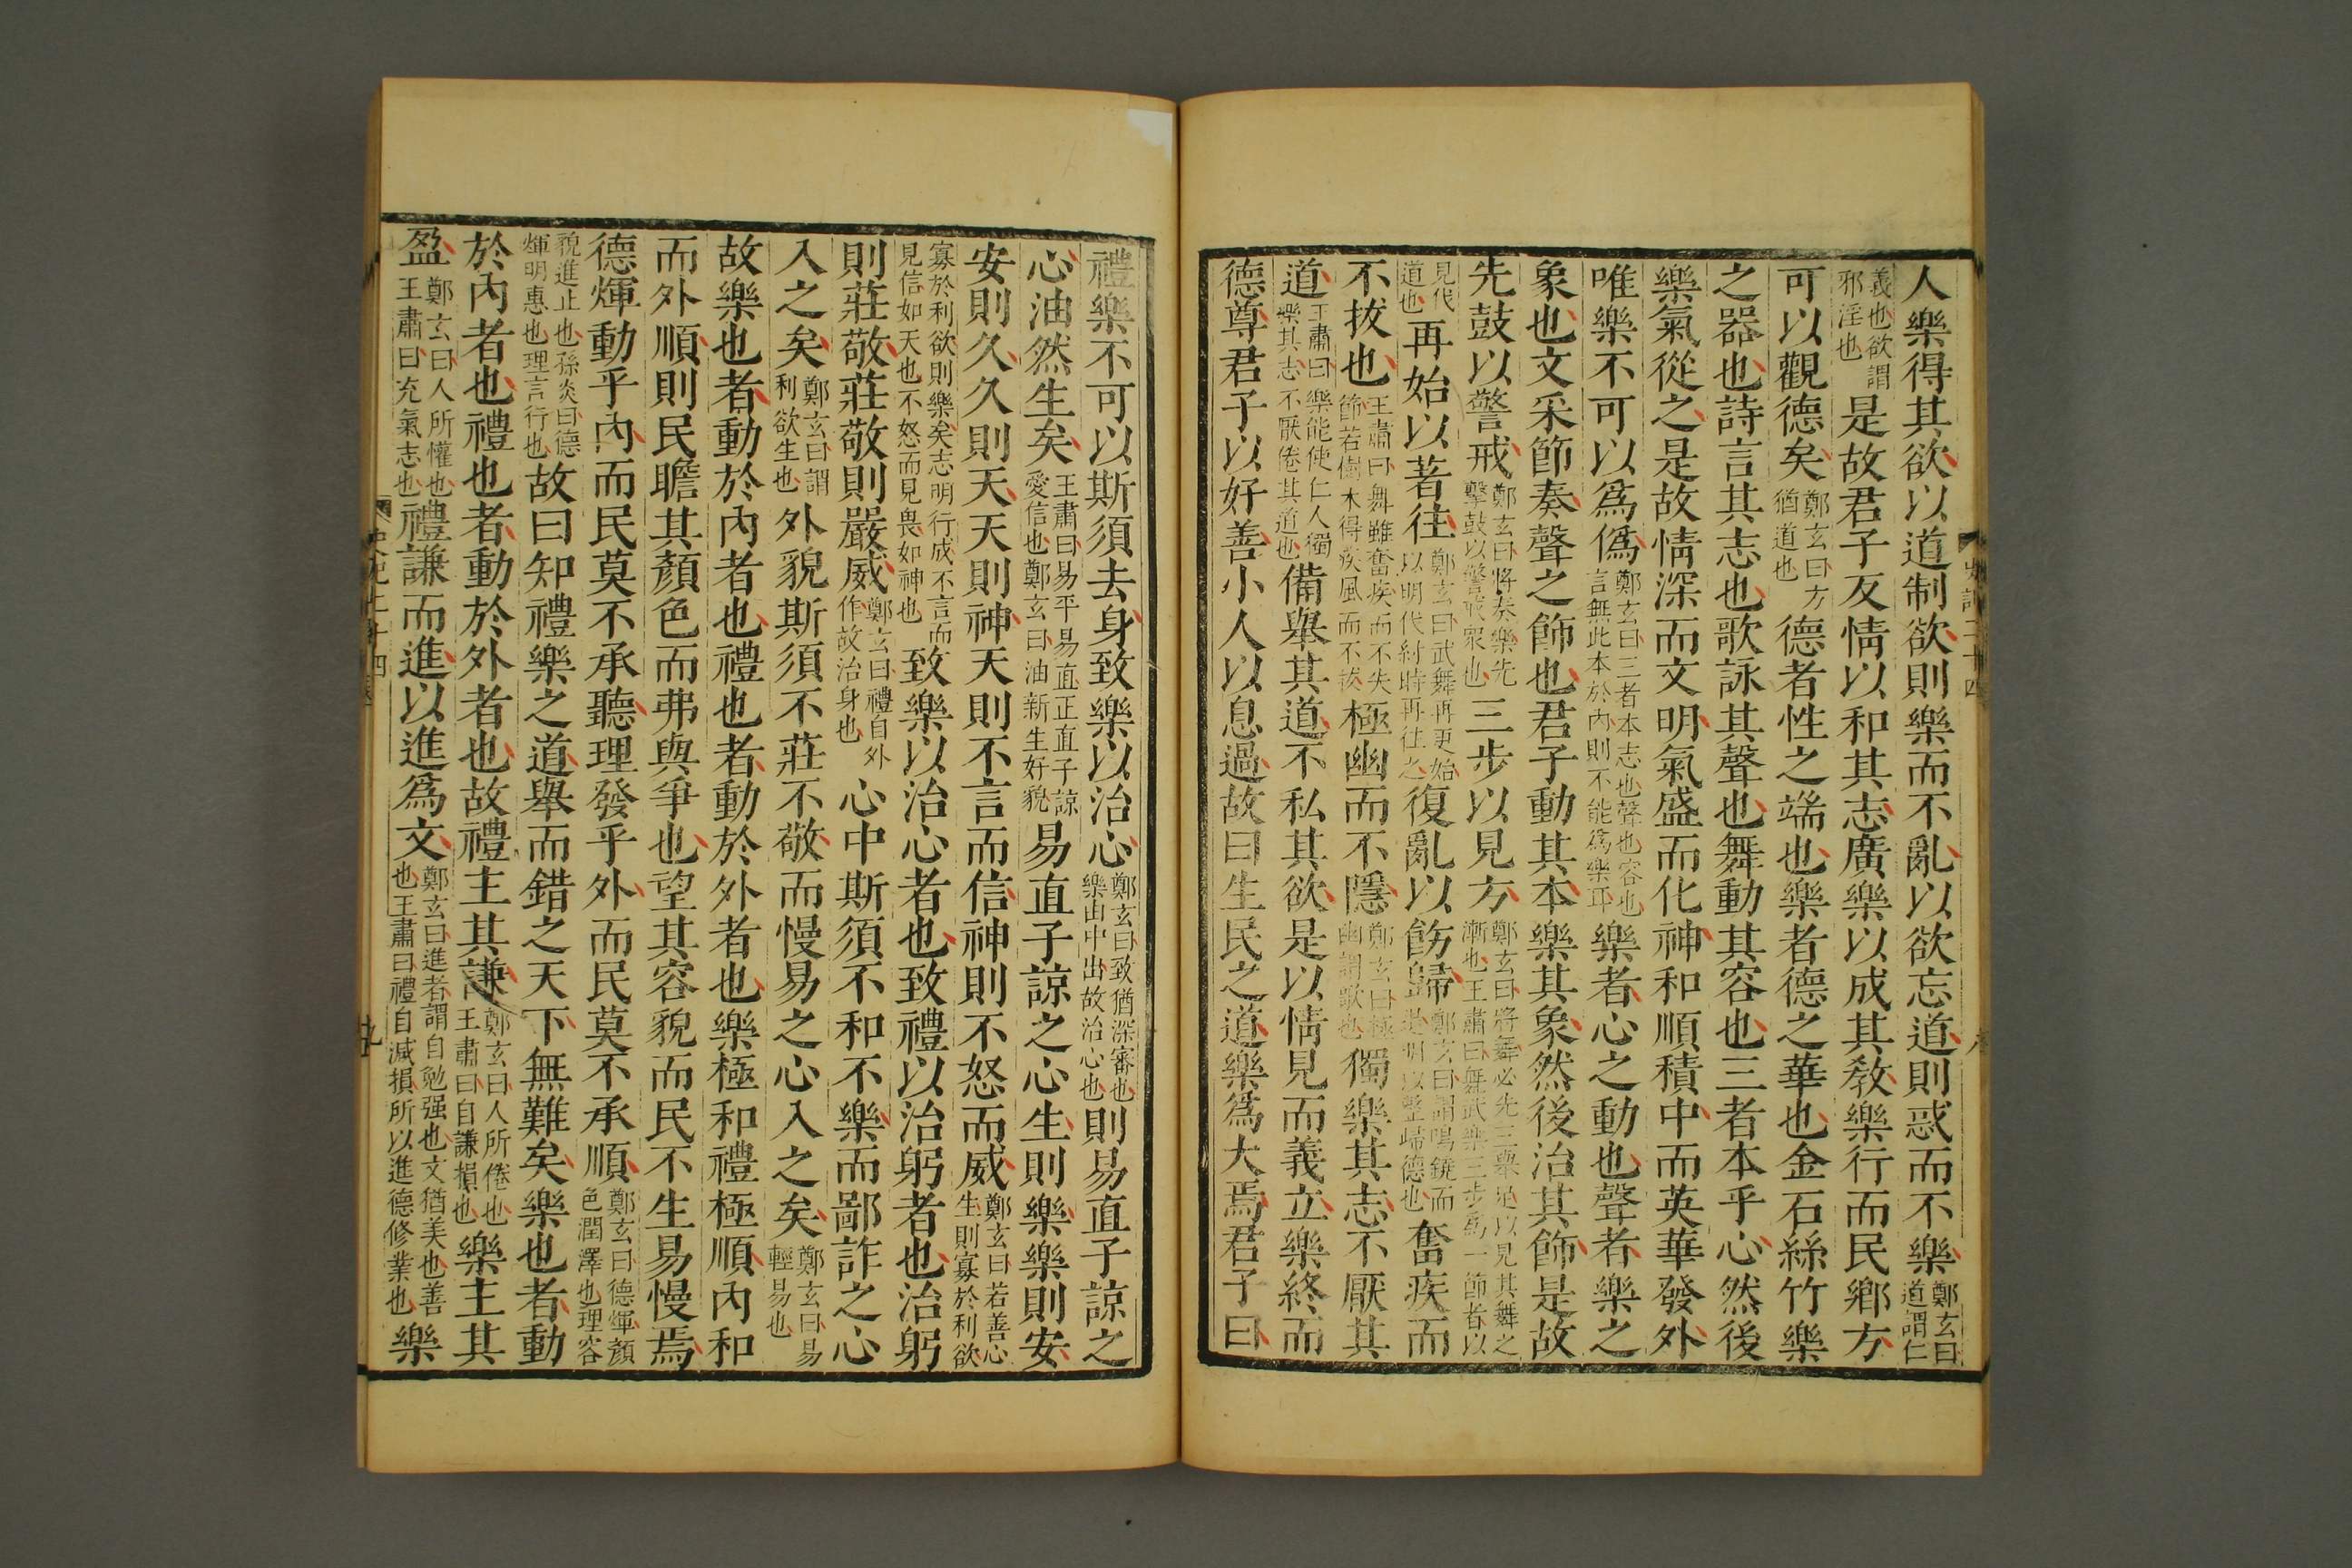 人樂得其欲以道制欲則樂而不亂以欲忘道則惑而不樂鄭玄曰道謂仁
義也欲謂邪淫也是故君子反情以和其志廣樂以成其敎樂行而民鄉方
可以觀德矣鄭玄曰方猶道也德者性之端也樂者德之華也金石絲竹樂
之器也詩言其志也歌詠其聲也舞動其容也三者本乎心然後
樂氣從之是故情深而文明氣盛而化神和順積中而英華發外
唯樂不可以爲僞鄭玄曰三者本志也聲也容也言無此本於內則不能爲樂耳樂者心之動也聲者樂之
象也文采節奏聲之飾也君子動其本樂其象然後治其飾是故
先鼓以警戒鄭玄曰將奏樂先擊鼓以警戒衆也三步以見方鄭玄曰將舞必先三舉足以見其舞之漸也王肅曰舞武樂三步爲一節者以
見伐道也再始以著往鄭玄曰武舞再更始以明伐紂時再往之復亂以飭歸鄭玄曰謂鳴鐃而退明以整歸德也奮疾而
不拔也王肅曰舞雖奮疾而不失節若樹木得疾風而不拔極幽而不隱鄭玄曰極幽謂歌也獨樂其志不厭其
道王肅曰樂能使仁人獨樂其志不厭倦其道也備舉其道不私其欲是以情見而義立樂終而
德尊君子以好善小人以息過故曰生民之道樂爲大焉君子曰
禮樂不可以斯須去身致樂以治心鄭玄曰致猶深審也樂由中出故治心也則易直子諒之
心油然生矣王肅曰易平易直正直子諒愛信也鄭玄曰油新生好貌易直子諒之心生則樂樂則安
安則久久則天天則神天則不言而信神則不怒而威鄭玄曰若善心生則寡於利欲
寡於利欲則樂矣志明行成不言而見信如天也不怒而見畏如神也致樂以治心者也致禮以治躬者也治躬
則莊敬莊敬則嚴威鄭玄曰禮自外作故治身也心中斯須不和不樂而鄙詐之心
入之矣鄭玄曰謂利欲生也外貌斯須不莊不敬而慢易之心入之矣鄭玄曰易輕易也
故樂也者動於內者也禮也者動於外者也樂極和禮極順內和
而外順則民瞻其顏色而弗與爭也望其容貌而民不生易慢焉
德煇動乎內而民莫不承聽理發乎外而民莫不承順鄭玄曰德煇顏色潤澤也理容
貌進止也孫炎曰德煇明惠也理言行也故曰知禮樂之道舉而錯之天下無難矣樂也者動
於內者也禮也者動於外者也故禮主其謙鄭玄曰人所倦也王肅曰自謙損也樂主其
盈鄭玄曰人所懽也王肅曰充氣志也禮謙而進以進爲文鄭玄曰進者謂自勉强也文猶美也善也王肅曰禮自減損所以進德修業也樂